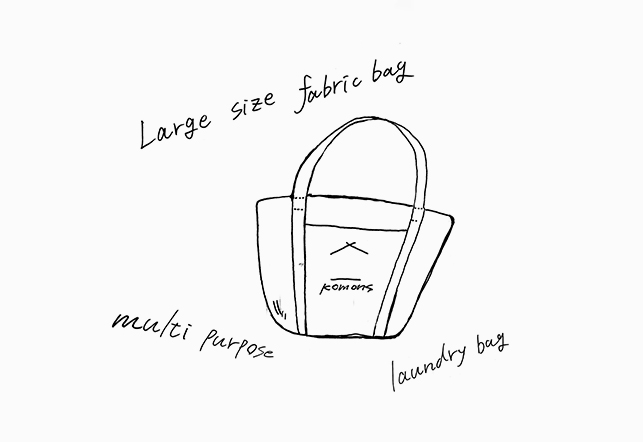 Large size fabric bag
komons
multi purpose
laundry bag